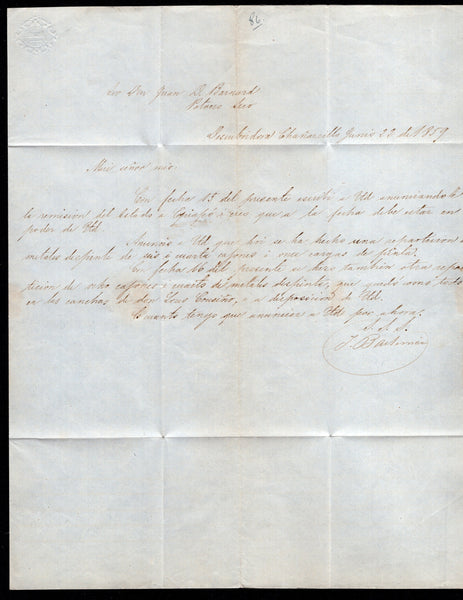 86
Sor Don Juan D. Barnard
Potrero Seco
Descubridora Chañarcillo Junio 22 de 1859
Mui señor mio.
Con fecha 15 del presente escribí a Vd anunciando
la remision del Estado a Copiapó i creo que a la fecha debe estar en
poder de Vd
Anuncio a Vd que hoi se ha hecho una reparticion de
metales despinte de seis i cuarta cajones i once cargas de plata.
En fecha 16 del presente se hizo tambien otra repar
ticion de ocho cajones i cuarto de metales despinte, que quedó
en las canchas de don Cousiño, a disposicion de Vd.
Es cuanto tengo que anunciar a Vd por ahora.
S. S. S.